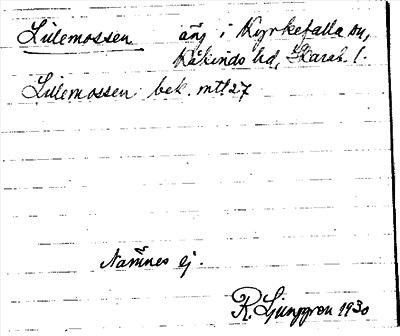 Lillemossen äng i Kyrkefalla sn,
Kåkinds hd, Skarab. l.
Lillemossen bek. mtl 27
Namnes ej.
R. Ljunggren 1930